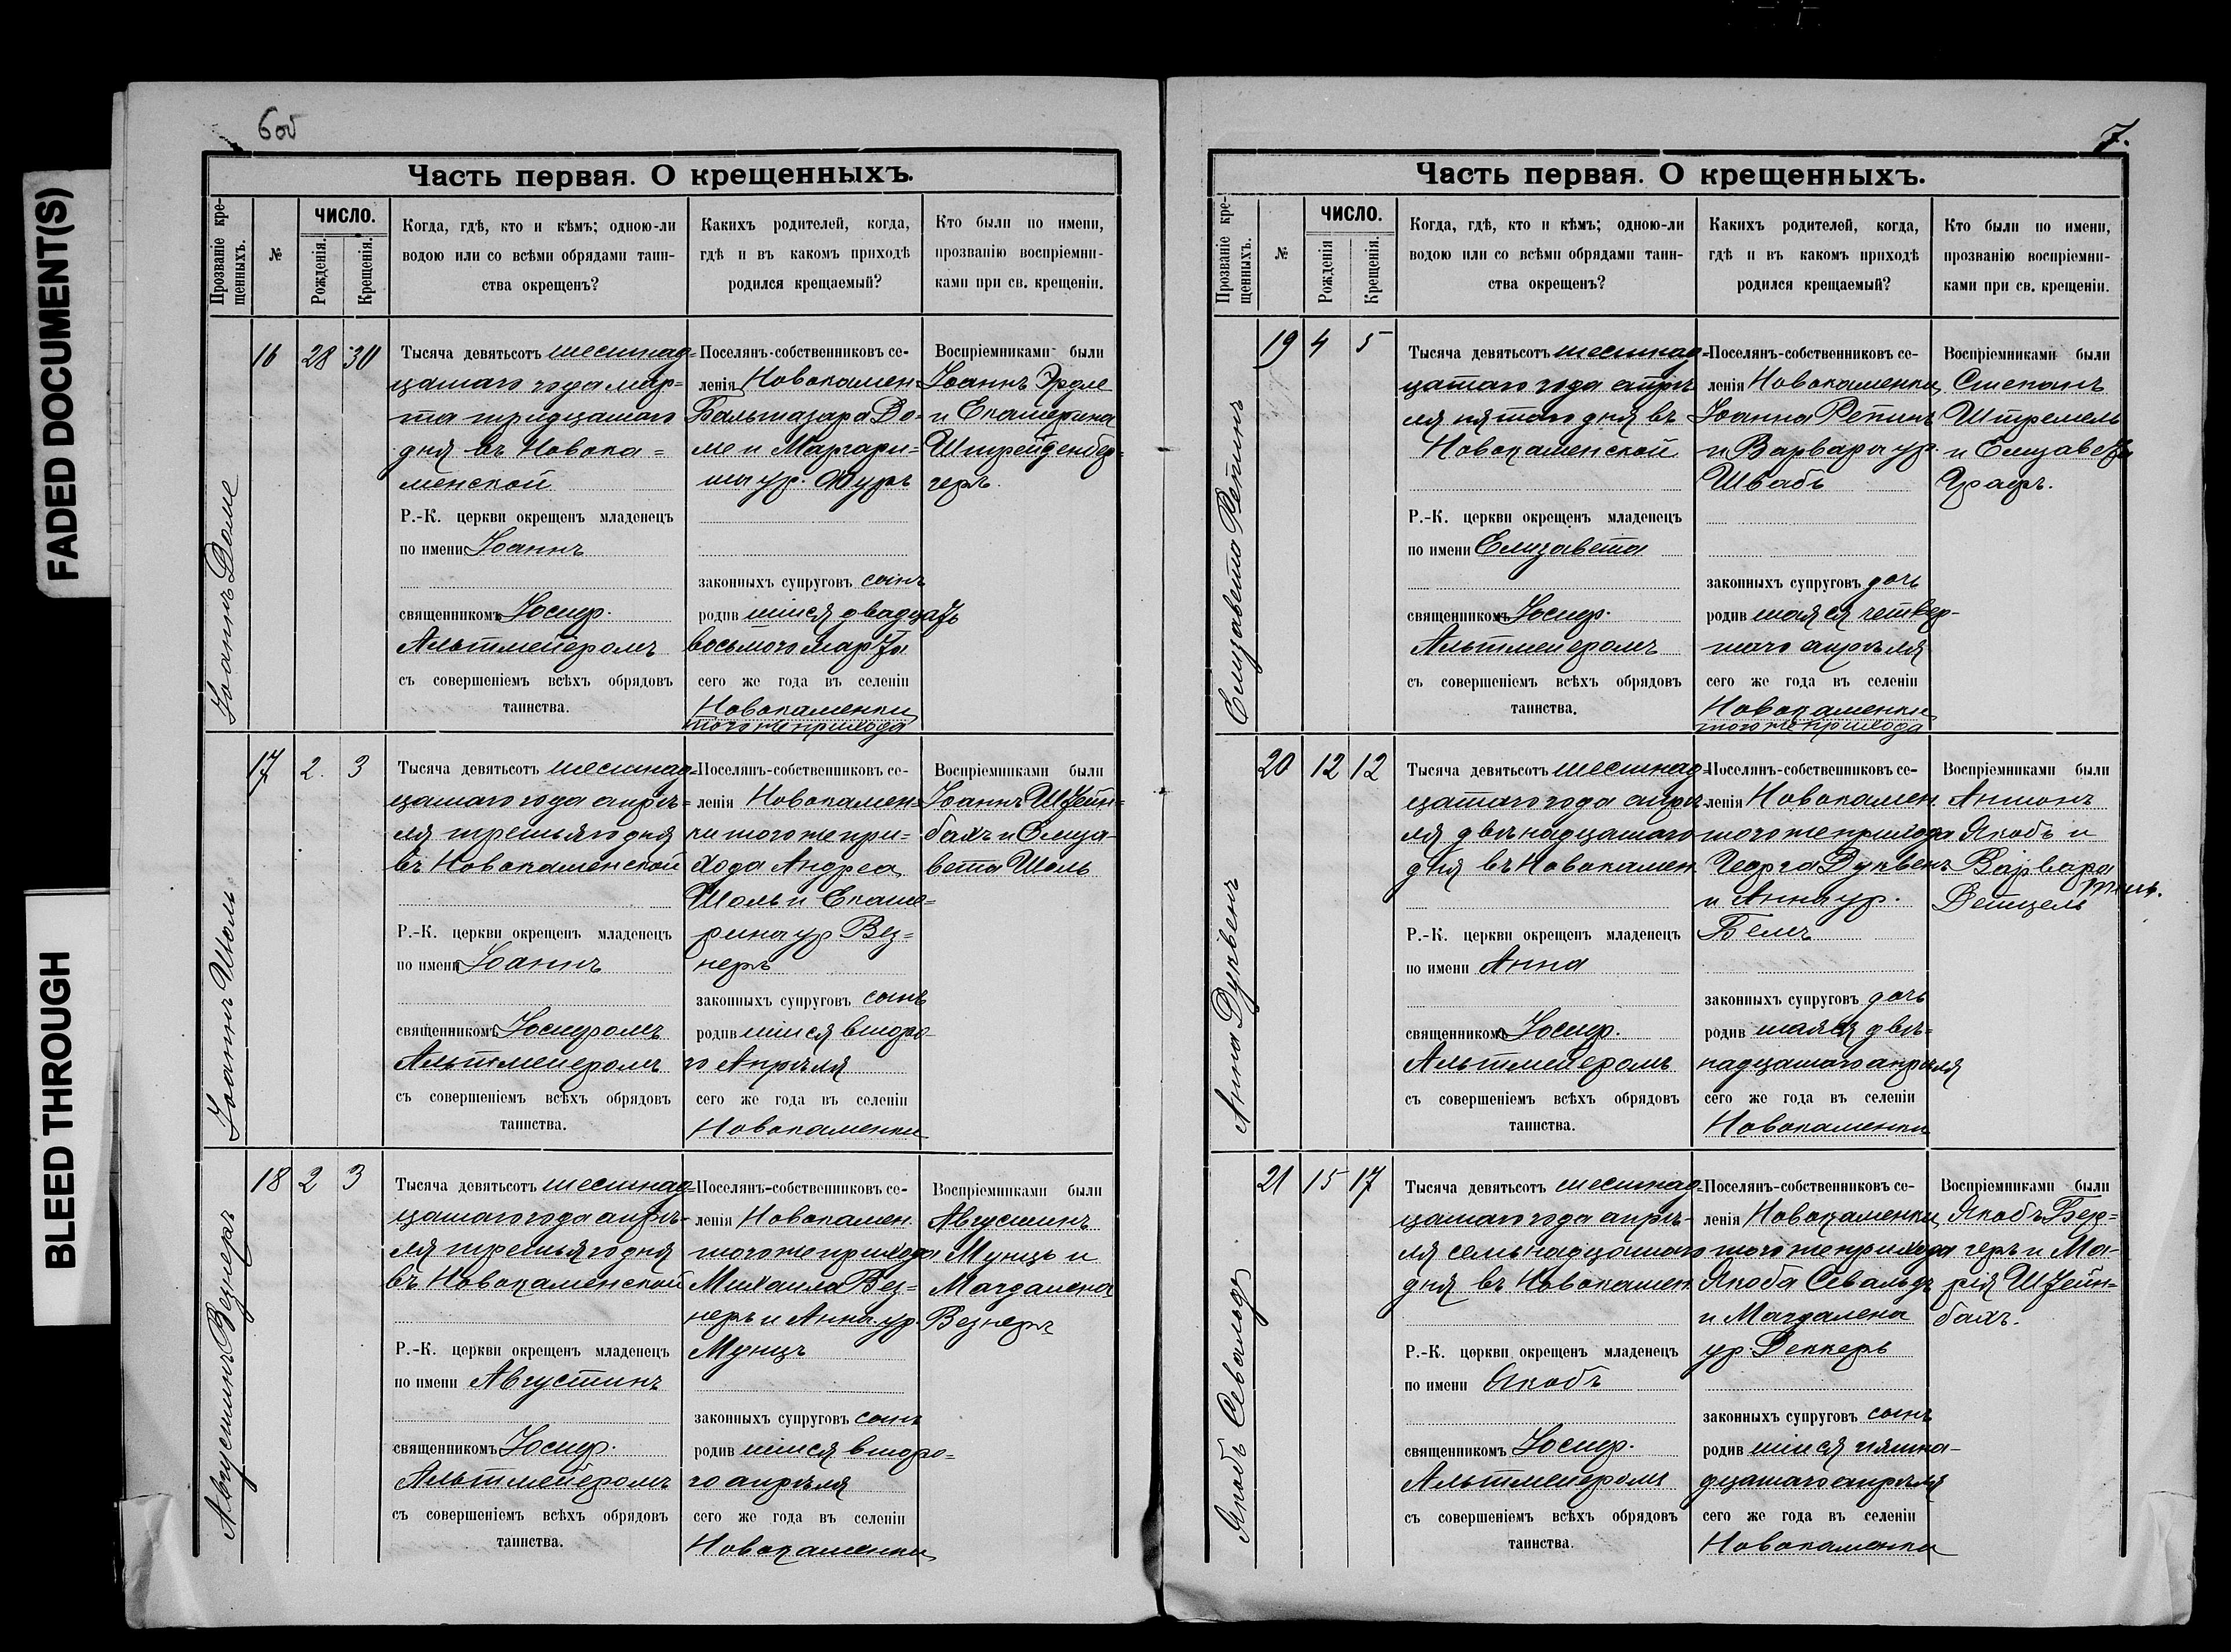 FADED DOCUMENT(S)
BLEED THROUGH
6об
Часть первая. О крещенныхъ.
Прозваніе кре-
щенныхъ.
№
ЧИСЛО.
Рожденія.
Крещенія.
Когда, гдѣ, кто и кѣмъ; одною-ли
водою или со всѣми обрядами таин-
ства окрещенъ?
Какихъ родителей, когда,
гдѣ и въ какомъ приходѣ
родился крещаемый?
Кто были по имени,
прозванію воспріемни-
ками при св. крещеніи.
Іоаннъ Доме
16
28
30
Тысяча девятьсотъ шестнад=
цатаго года мар=
та тридцатаго
дня въ Новока=
менской
Р.-К. церкви окрещенъ младенецъ
по имени Іоаннъ
священникомъ Іосиф.
Альтмейеромъ
съ совершеніемъ всѣхъ обрядовъ
таинства.
Поселянъ-собственниковъ се-
ленія Новокамен=
Бальтазара До=
ме и Маргари=
ты ур. Фуръ
законныхъ супруговъ сынъ
родив шійся двадцать
восьмого марта
сего же года въ селеніи
Новокаменки
того же прихода
Воспріемниками были
Іоаннъ Эрдле
и Екатерина
Штрейденбер=
геръ.
Іоаннъ Шоль
17
2.
3
Тысяча девятьсотъ шестнад=
цатаго года апрѣ=
ля третьяго дня
въ Новокаменской
Р.-К. церкви окрещенъ младенецъ
по имени Іоаннъ
священникомъ Іосифомъ
Альтмейеромъ
съ совершеніемъ всѣхъ обрядовъ
таинства.
Поселянъ-собственниковъ се-
ленія Новокамен=
ки того же при=
хода Андреа
Шоль и Екате=
рина ур Вез=
неръ
законныхъ супруговъ сынъ
родив шійся второ-
го Апрѣля
сего же года въ селеніи
Новокаменки
Воспріемниками были
Іоаннъ Штейн=
бахъ и Елиза-
вета Шоль
Августинъ Везнеръ
18
2
3
Тысяча девятьсотъ шестнад=
цатаго года апрѣ-
ля третьяго дня
въ Новокаменской
Р.-К. церкви окрещенъ младенецъ
по имени Августинъ
священникомъ Іосиф.
Альтмейеромъ
съ совершеніемъ всѣхъ обрядовъ
таинства.
Поселянъ-собственниковъ се-
ленія Новокамен.
того же прихода
Михаила Вез=
неръ и Анна ур.
Мунцъ
законныхъ супруговъ сынъ
родив шійся второ=
го апрѣля
сего же года въ селеніи
Новокаменки
Воспріемниками были
Августинъ
Мунцъ и
Магдалена
Везнеръ
7.
Часть первая. О крещенныхъ.
Прозваніе кре-
щенныхъ.
№
ЧИСЛО.
Рожденія
Крещенія.
Когда, гдѣ, кто и кѣмъ; одною-ли
водою или со всѣми обрядами таин-
ства окрещенъ?
Какихъ родителей, когда,
гдѣ и въ какомъ приходѣ
родился крещаемый?
Кто были по имени,
прозванію воспріемни-
ками при св. крещеніи.
Елизавета Репинъ
19
4
5
Тысяча девятьсотъ шестнад=
цатаго года апрѣ
ля пятаго дня въ
Новокаменской
Р.-К. церкви окрещенъ младенецъ
по имени Елизавета
священникомъ Іосиф.
Альтмейеромъ
съ совершеніемъ всѣхъ обрядовъ
таинства.
Поселянъ-собственниковъ се-
ленія Новокаменки
Іоанна Репинъ
и Варвары ур.
Швабъ
законныхъ супруговъ дочь
родив шаяся четвер-
таго апрѣля
сего же года въ селеніи
Новокаменки
того же прихода
Воспріемниками были
Степанъ
Штремель
и Елизавета
Графъ.
Анна Дуквенъ
20
12
12
Тысяча девятьсотъ шестнад=
цатаго года апрѣ
ля двѣнадцатаго
дня въ Новокамен.
Р.-К. церкви окрещенъ младенецъ
по имени Анна
священникомъ Іосиф.
Альтмейеромъ
съ совершеніемъ всѣхъ обрядовъ
таинства.
Поселянъ-собственниковъ се-
ленія Новокамен.
того же прихода
Георга Дуквенъ
и Анна ур.
Бемъ
законныхъ супруговъ дочь
родив шаяся двѣ=
надцатаго апрѣля
сего же года въ селеніи
Новокаменки
Воспріемниками были
Антонъ
Якобъ и
Варвара
Дейцель
Якобъ Севальдъ
21
15
17
Тысяча девятьсотъ шестнад=
цатаго года апрѣ-
ля семьнадцатаго
дня въ Новокамен
Р.-К. церкви окрещенъ младенецъ
по имени Якобъ
священникомъ Іосиф.
Альтмейеромъ
съ совершеніемъ всѣхъ обрядовъ
таинства.
Поселянъ-собственниковъ се-
ленія Новокаменки
того же прихода
Якоба Севальдъ
и Магдалена
ур. Деккеръ
законныхъ супруговъ сынъ
родив шійся пятна-
дцатаго апрѣля
сего же года въ селеніи
Новокаменки
Воспріемниками были
Якобъ Бер=
геръ и Ма-
рія Штейн=
бахъ.